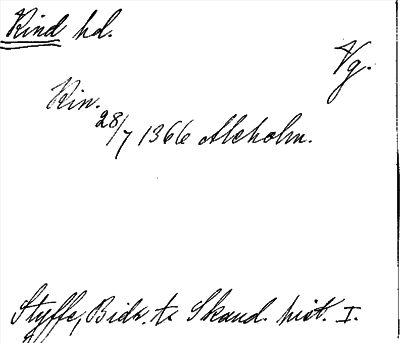 Kind hd.
Vg.
Kin.
28/7 1366 Aleholm.
Styffe, Bidr. t. Skand. hist. I.